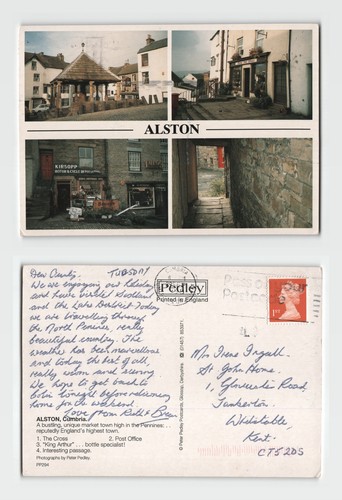 ALSTON
Dear Cindy, TUESDAY
We are enjoying our holiday
and have visited Scotland
and the Lake District. Today
we are travelling through
the North Pennines, really
beautiful country. The
weather has been marvellous
and today the best of all,
really warm and sunny.
We hope to get back to
home for the weekend
Love from
ALSTON, Cumbria.
A bustling, unique market town high in the Pennines
reputedly England's highest town.
1. The Cross 2. Post Office
3. "King Arthur" bottle specialist!
4. Interesting passage.
Photographs by Peter Pedley.
PP294
Pedley
Printed in England
© Peter Pedley Postcards, Glossop, Derbyshire
1ST
Mrs Irene
St John Home.
1, Gloucester Road,
Tankerton
Whitstable,
Kent.
CT5 2DS